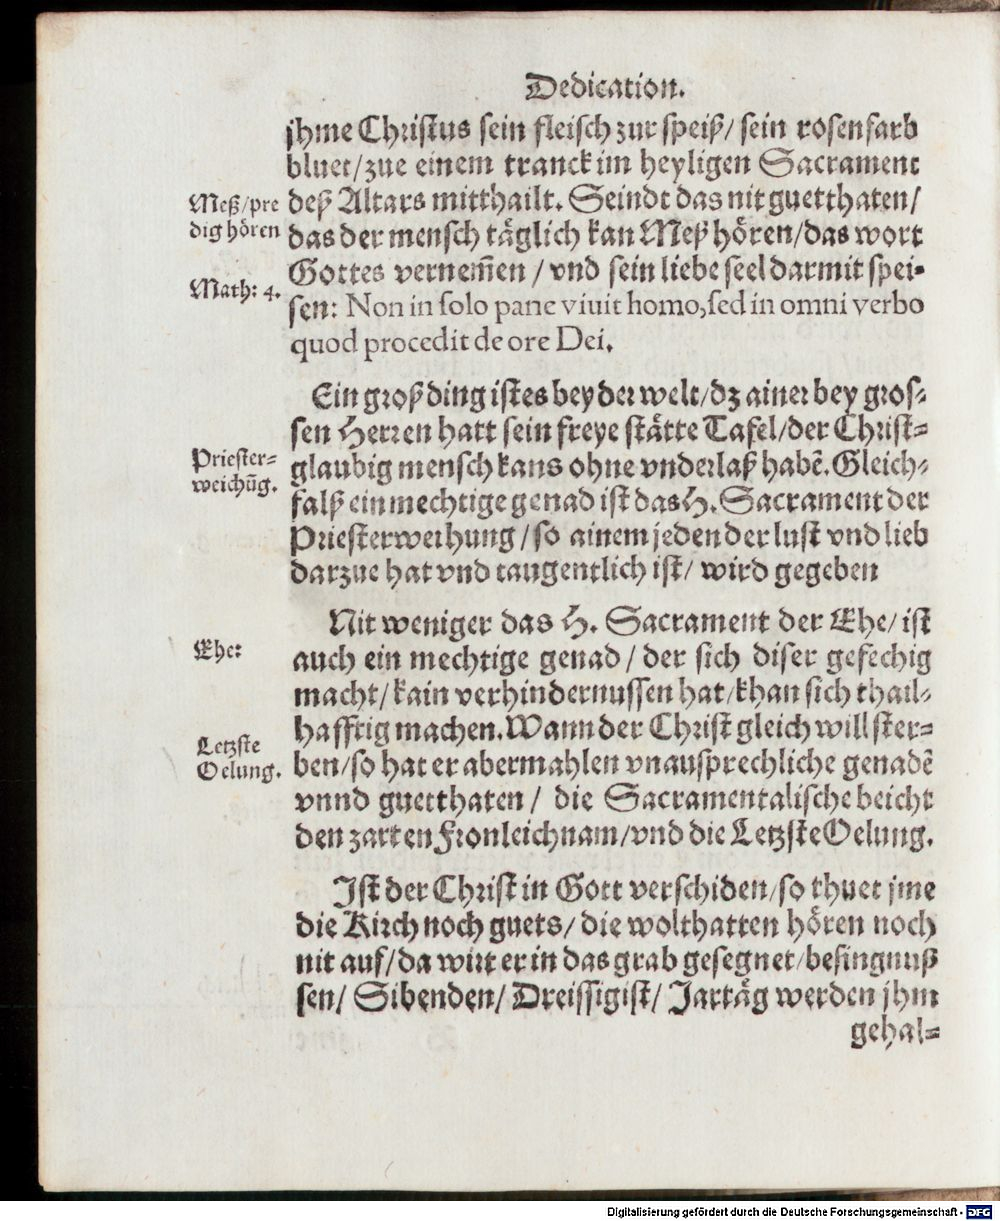 Dedication.
jhme Christus sein fleisch zur speiß/ sein rosenfarb
bluet/zue einem tranck im heyligen Sacrament
Meß/pre
dig hören
deß Altars mitthailt. Seindt das nit guetthaten/
das der mensch täglich kan Meß hören/das wort
Gottes vernem̃en /vnd sein liebe seel darmit spei-
Math: 4.
sen: Non in solo pane viuit homo,sed in omni verbo
quod procedit de ore Dei.
Ein groß ding ist es bey der welt/dz ainer bey gros-
sen Herren hatt sein freye stätte Tafel/der Christ-
Priester-
weichũg.
glaubig mensch kans ohne vnderlaß habẽ. Gleich-
falß ein mechtige genad ist das H. Sacrament der
Priesterweihung /so ainem jeden der lust vnd lieb
darzue hat vnd taugentlich ist/ wird gegeben
Nit weniger das H. Sacrament der Ehe/ ist
Ehe:
auch ein mechtige genad / der sich diser gefechig
macht/kain verhindernussen hat/khan sich thail-
hafftig machen. Wann der Christ gleich will ster-
Letzste
Oelung.
ben/so hat er abermahlen vnausprechliche genadẽ
vnnd guetthaten / die Sacramentalische beicht
den zarten Fronleichnam/vnd die Letzste Oelung.
Ist der Christ in Gott verschiden/so thuet jme
die Kirch noch guets/ die wolthatten hören noch
nit auf/da wirt er in das grab gesegnet/besingnuß
sen/ Sibenden/ Dreissigist/ Jartäg werden jhm
gehal-
Digitalisierung gefördert durch die Deutsche Forschungsgemeinschaft - DFG